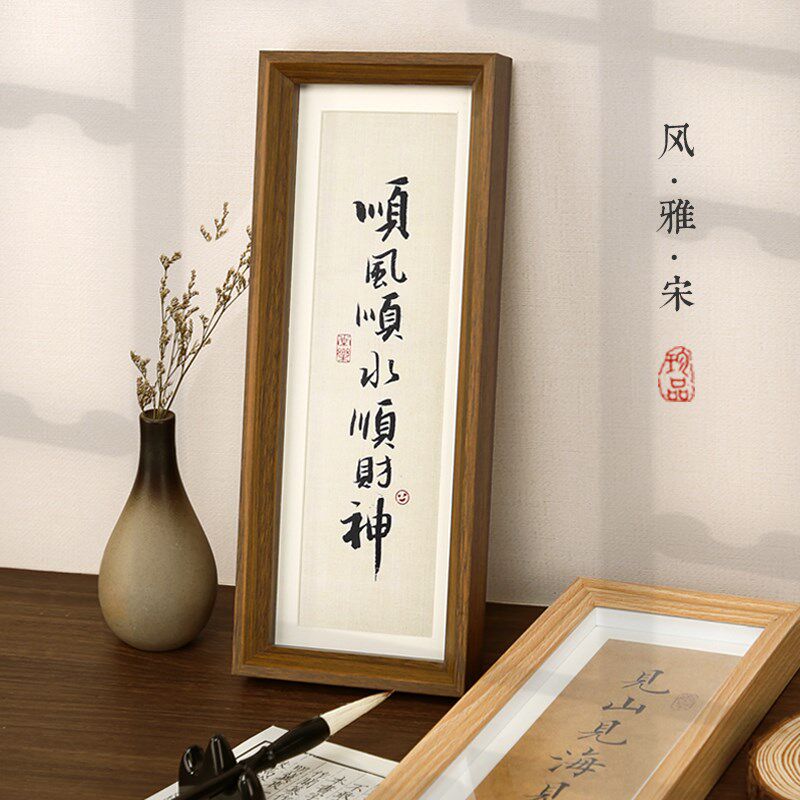 順風順水順財神
风·雅·宋
珍品
見山見海見